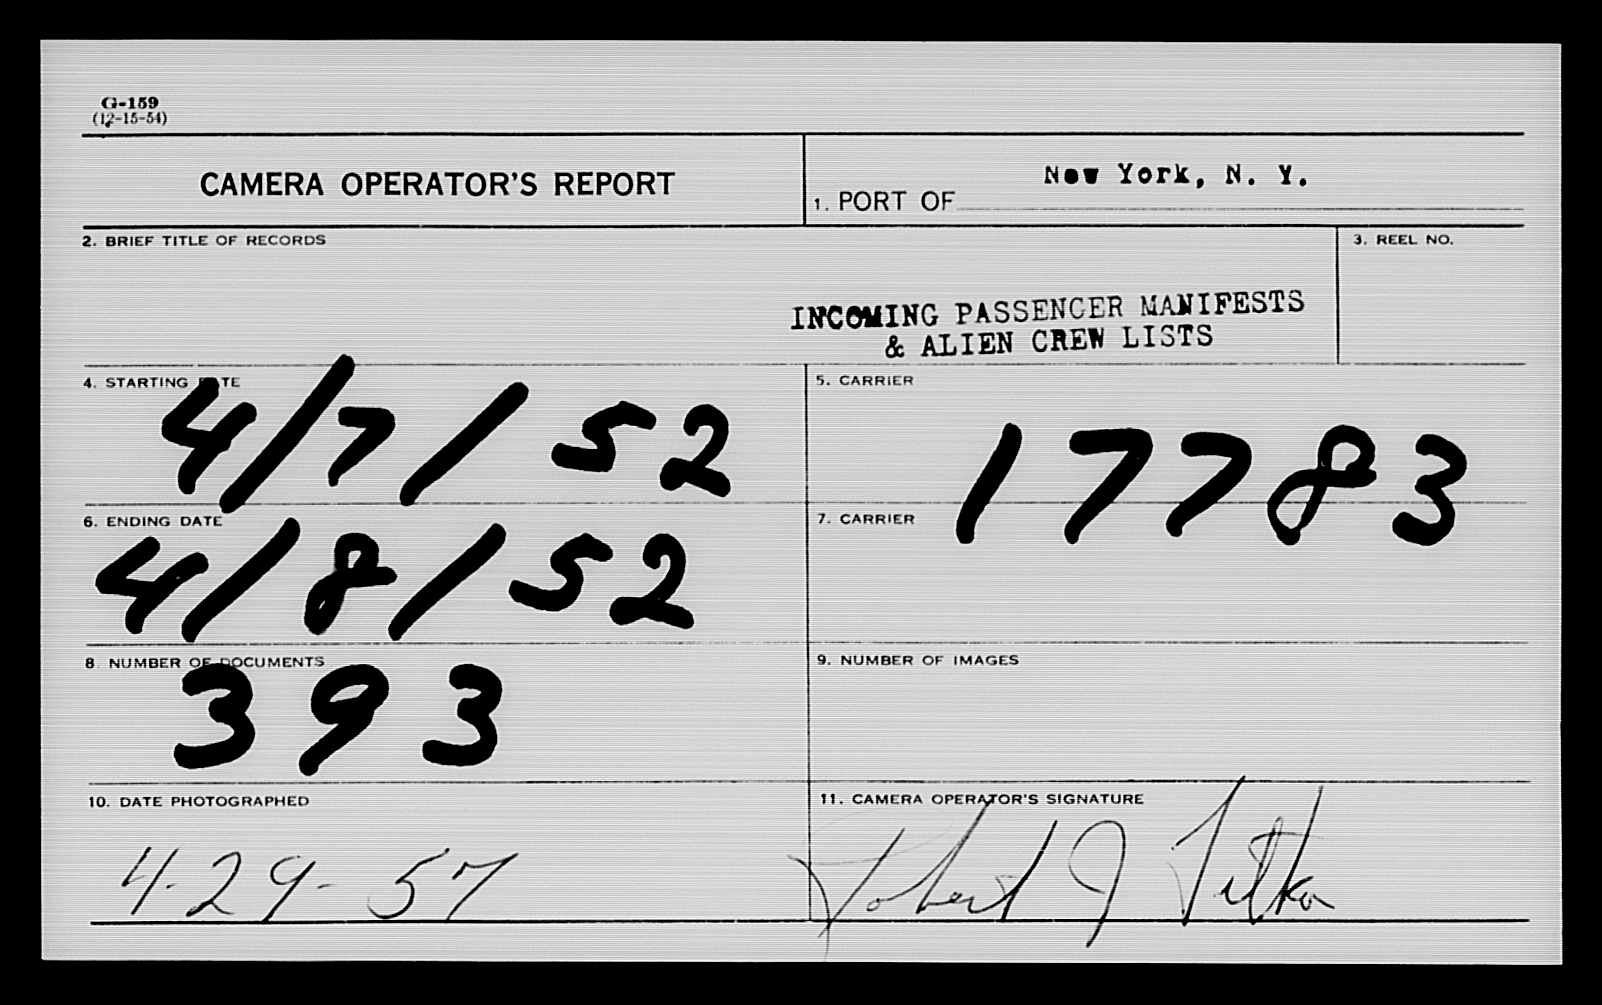 G-159
(12-15-54)
CAMERA OPERATOR'S REPORT
1. PORT OF New York, N. Y.
2. BRIEF TITLE OF RECORDS
3. REEL NO.
INCOMING PASSENGER MANIFESTS
& ALIEN CREW LISTS
4. STARTING DATE
4/7/52
5. CARRIER
17783
6. ENDING DATE
4/8/52
7. CARRIER
8. NUMBER OF DOCUMENTS
393
9. NUMBER OF IMAGES
10. DATE PHOTOGRAPHED
4-29-57
11. CAMERA OPERATOR'S SIGNATURE
Robert J